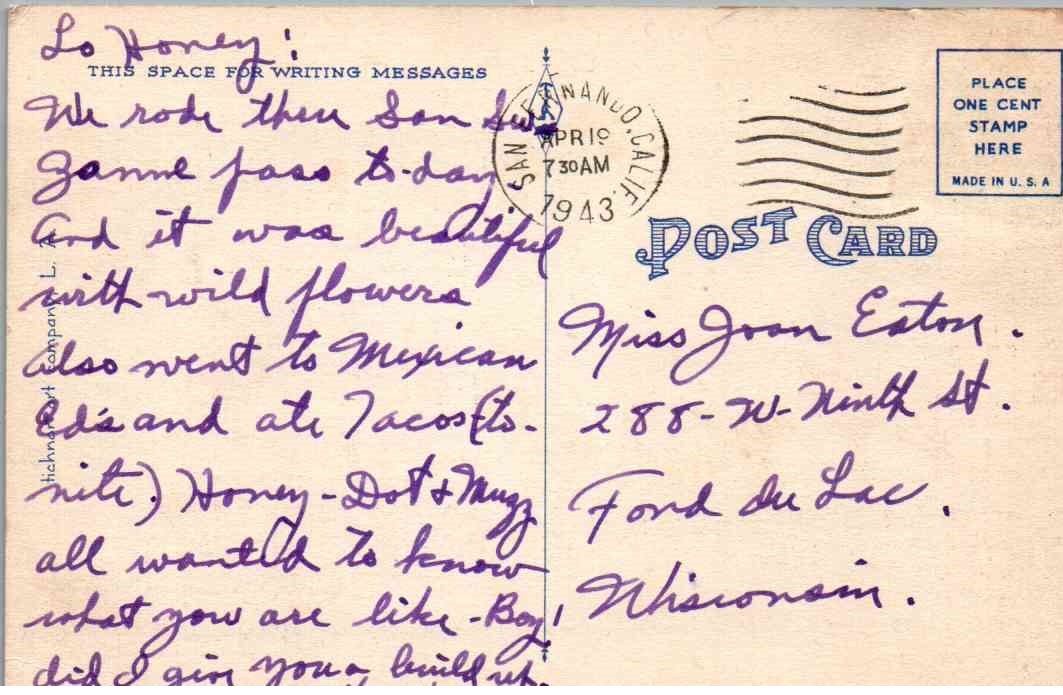 Lo Honey!
THIS SPACE FOR WRITING MESSAGES
We rode thru San Su-
zanne pass to-day
And it was beautiful
with wild flowers
also went to Mexican
Ed's and ate Tacos (to-
nite.) Honey - Dot & Muzz
all wanted to know
what you are like - Boy!
did I give you a build up.
tichnor art company L.
SAN FERNANDO, CALIF.
APR 19
7 30 AM
1943
PLACE
ONE CENT
STAMP
HERE
MADE IN U. S. A
POST CARD
Miss Joan Eaton.
288 - W - Ninth St.
Fond du Lac.
Wisconsin.